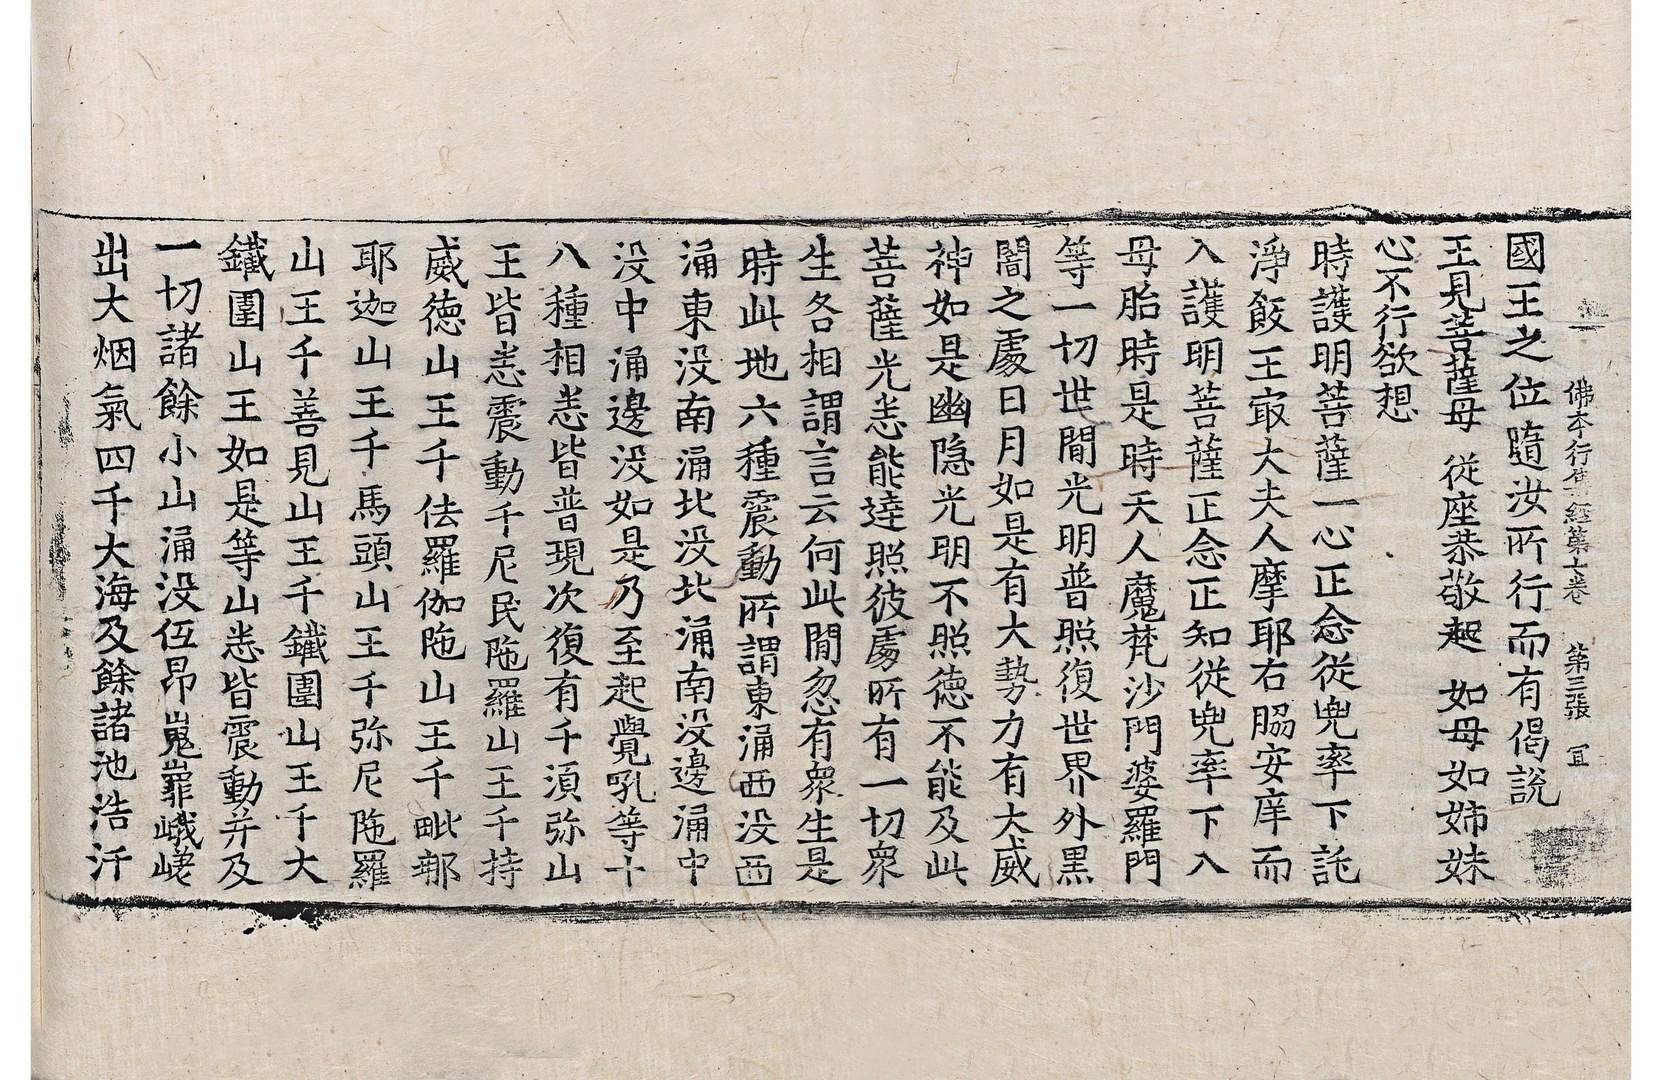 國王之位隨汝所行而有偈說
佛本行集經第七卷 第三張 冝
王見菩薩母 從座恭敬起 如母如姉妹
心不行欲想
時護明菩薩一心正念從兜率下託
淨飯王㝡大夫人摩耶右脇安庠而
入護明菩薩正念正知從兜率下入
母胎時是時天人魔梵沙門婆羅門
等一切世間光明普照復世界外黒
闇之處日月如是有大勢力有大威
神如是幽隐光明不照德不能及此
菩薩光悉能達照彼處所有一切衆
生各相謂言云何此間忽有衆生是
時此地六種震動所謂東涌西没西
涌東没南涌北没北涌南没邊涌中
没中涌邊没如是乃至起覺吼等十
八種相悉皆普現次復有千湏弥山
王皆悉震動千尼民陁羅山王千持
威德山王千佉羅伽陁山王千毗那
耶迦山王千馬頭山王千弥尼陁羅
山王千善見山王千鐵圍山王千大
鐵圍山王如是等山悉皆震動并及
一切諸餘小山涌没伍昂嵬㠑峨嵯
出大烟氣四千大海及餘諸池浩汗